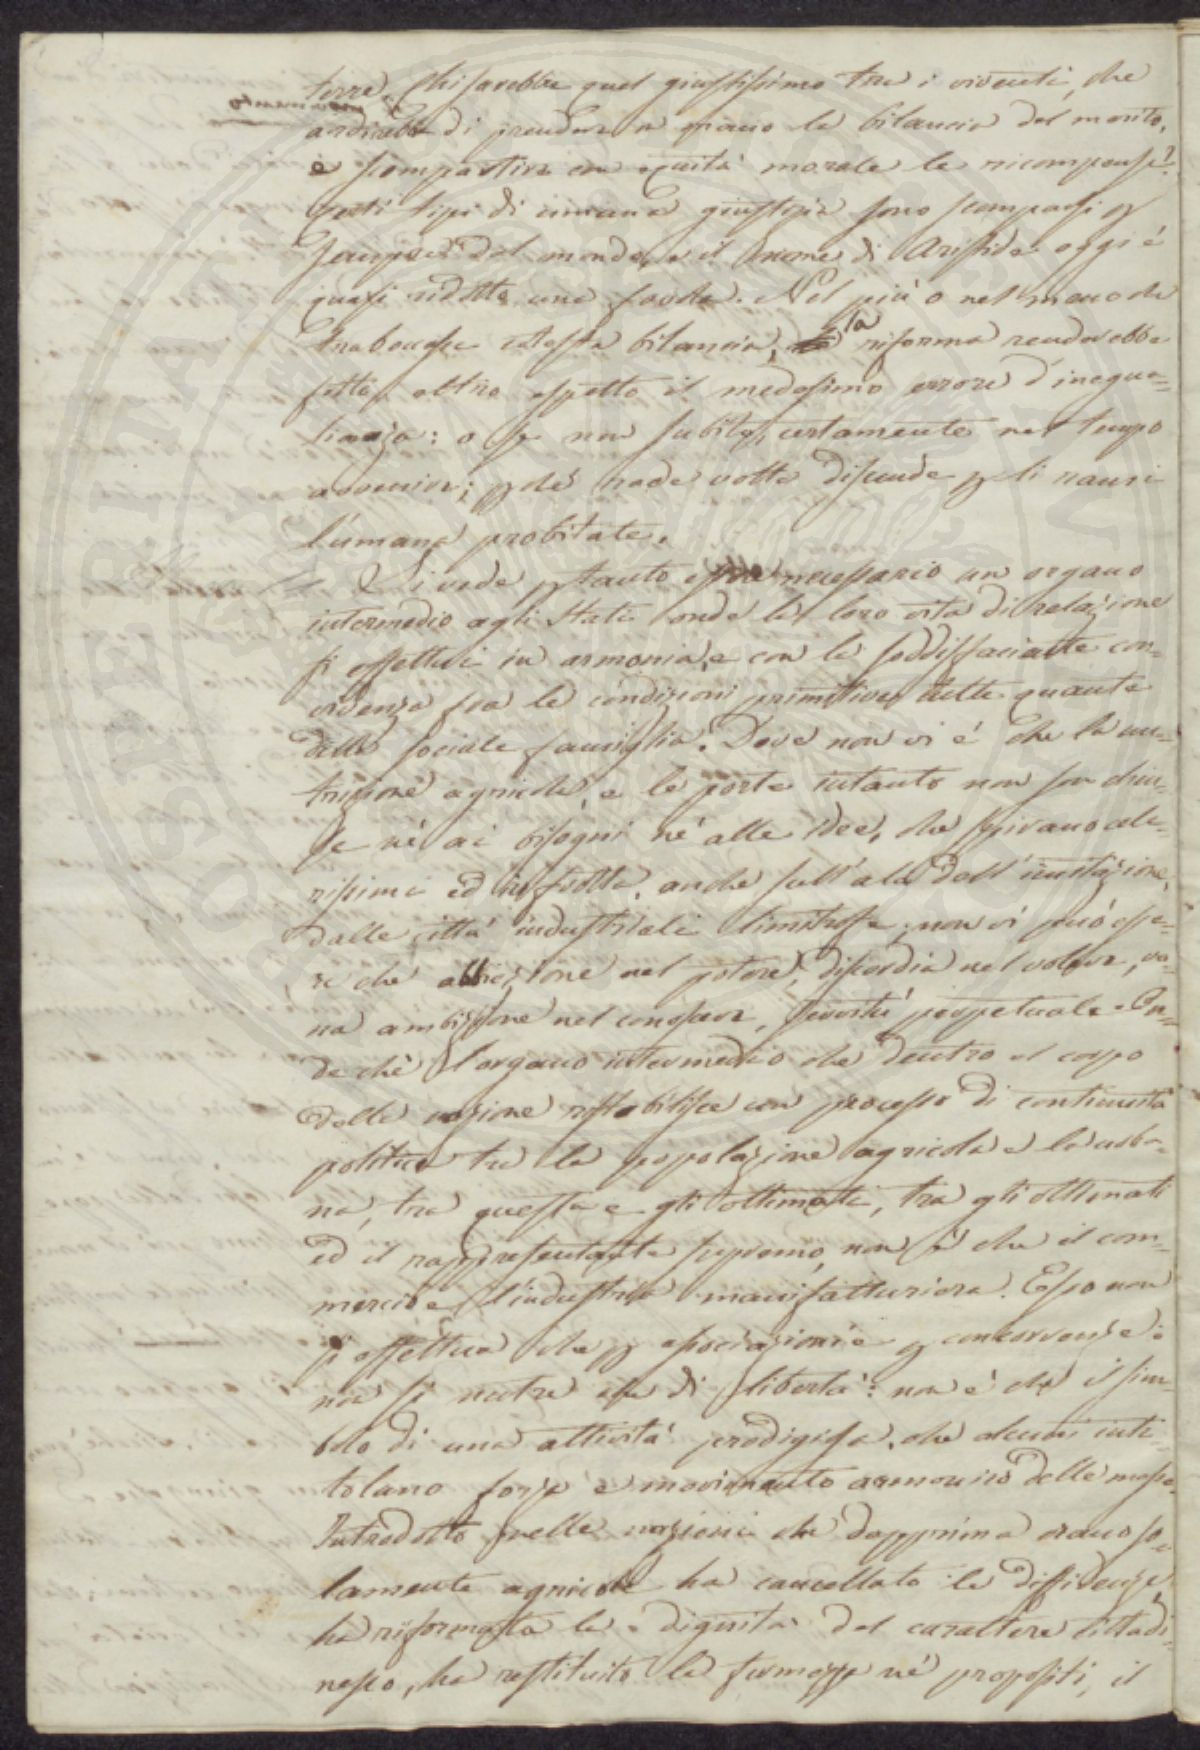 terre. Chi sarebbe quel giustissimo tra i viventi, che
movimento
ardirebbe di prendere in mano la bilancia del merito,
e scompartire con equità morale le ricompense?
Certi tipi di umana giustizia sono scomparsi p
sempre dal mondo, e il nome di Aristide oggi è
quasi ridotto una favola. Nel più o nel meno che
traboccasse cotesta bilancia, la riforma renderebbe
sotto altro aspetto il medesimo errore d'inegua-
lianza: o se non subito, certamente nel tempo
avvenire; pchè rade volte discende p li rami
l'umana probitate.
Si vede ptanto essere necessario un organo
intermedio agli Stati onde la loro vita di relazione
si effettui in armonia, e con la soddisfaciente con-
vivenza fra le condizioni primitive tutte quante
della sociale famiglia. Dove non vi è che la nu-
trizione agricola, e le porte intanto non son chiu-
se nè ai bisogni nè alle idee, che spirano cele-
rissime ed in frotta, anche sull'ala dell'imitazione,
dalle città industriali limitrofe, non vi può esse-
re che abbiezione nel potere, discordia nel volere, va-
na ambizione nel conoscere, servitù perpetuale. On-
de chè l'organo intermedio che dentro el corpo
della nazione ristabilisce un processo di continuità
politica tra la popolazione agricola e la urba-
na, tra questa e gli ottimati, tra gli ottimati
ed il rappresentante supremo, non è che il com-
mercio e l'industria manifatturiera. Esso non
si effettua che p associazioni e p concorrenze:
non si nutre che di libertà: non è che il sim-
bolo di una attività prodigiosa, che alcuni inti-
tolano forza e movimento armonico delle masse.
Introdotto nelle nazioni che dapprima erano so-
lamente agricole ha cancellato le diffidenze,
ha riformata la dignità del carattere cittadi-
nesco, ha restituito la fermezza nè propositi, il